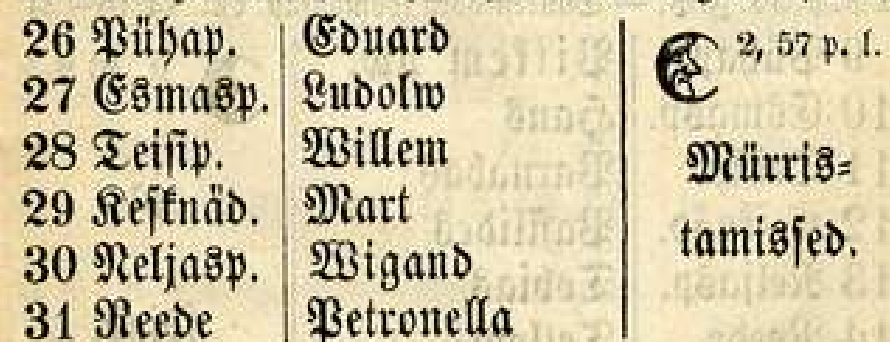 26 Pühap. Eduard
27 Esmasp. Ludolw
28 Teisip. Willem
29 Kesknäd. Mart
30 Neljasp. Wigand
31 Reede Petronella
2, 57 p. l.
Mürris-
tamissed.